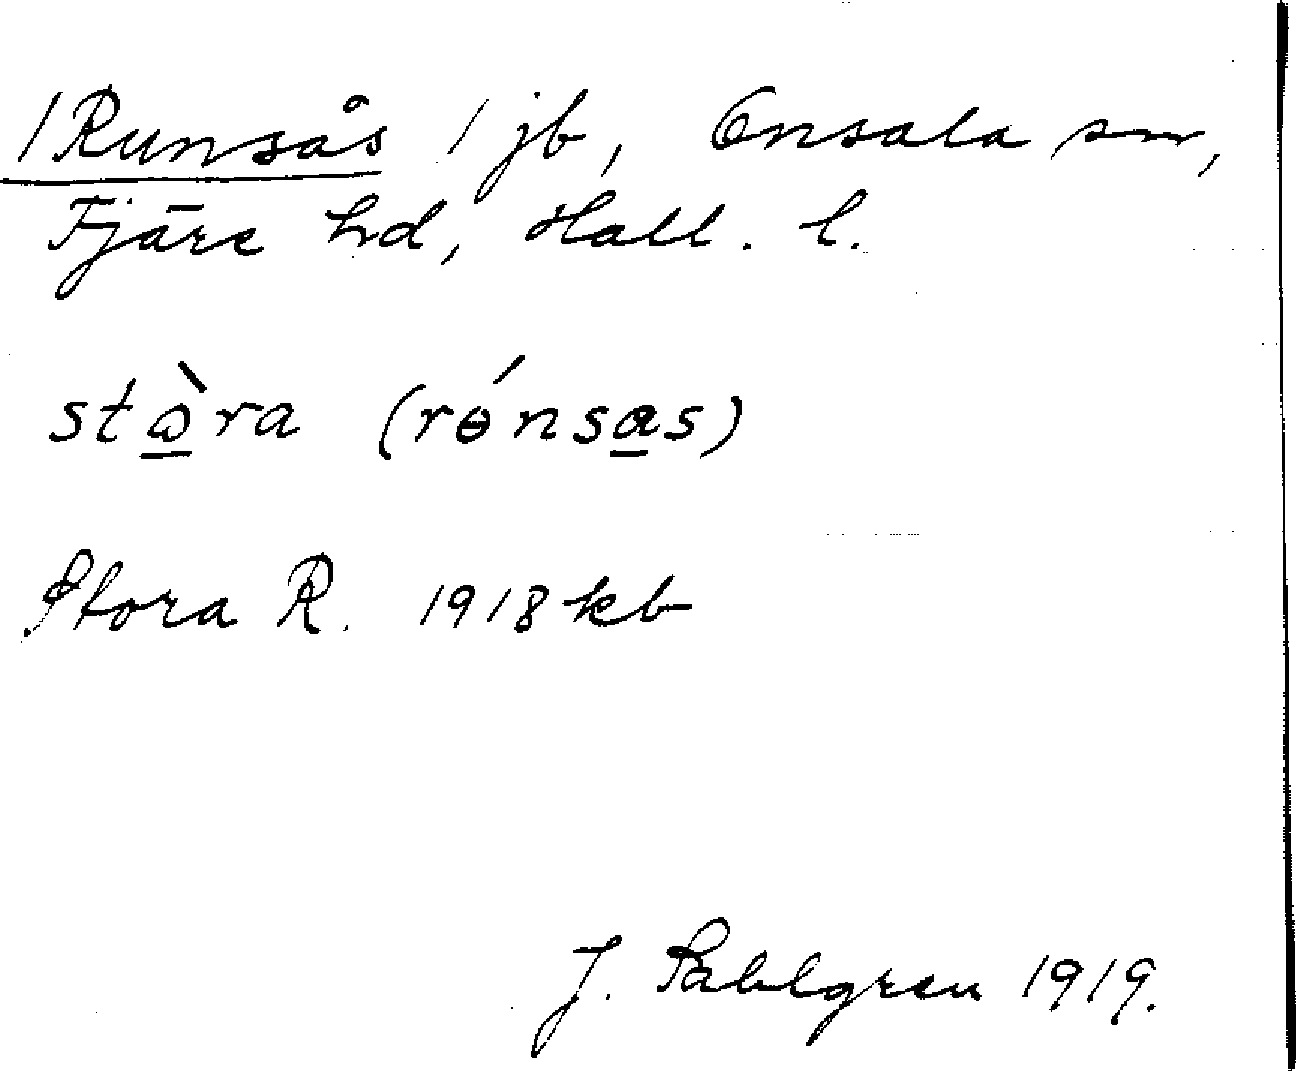 /Runsås / jb, Onsala sn,
Fjäre hd, Hall. l.
stꞷ̠̀ra (rɵ́nsa̠s)
Stora R. 1918 kb
J. Sahlgren 1919.